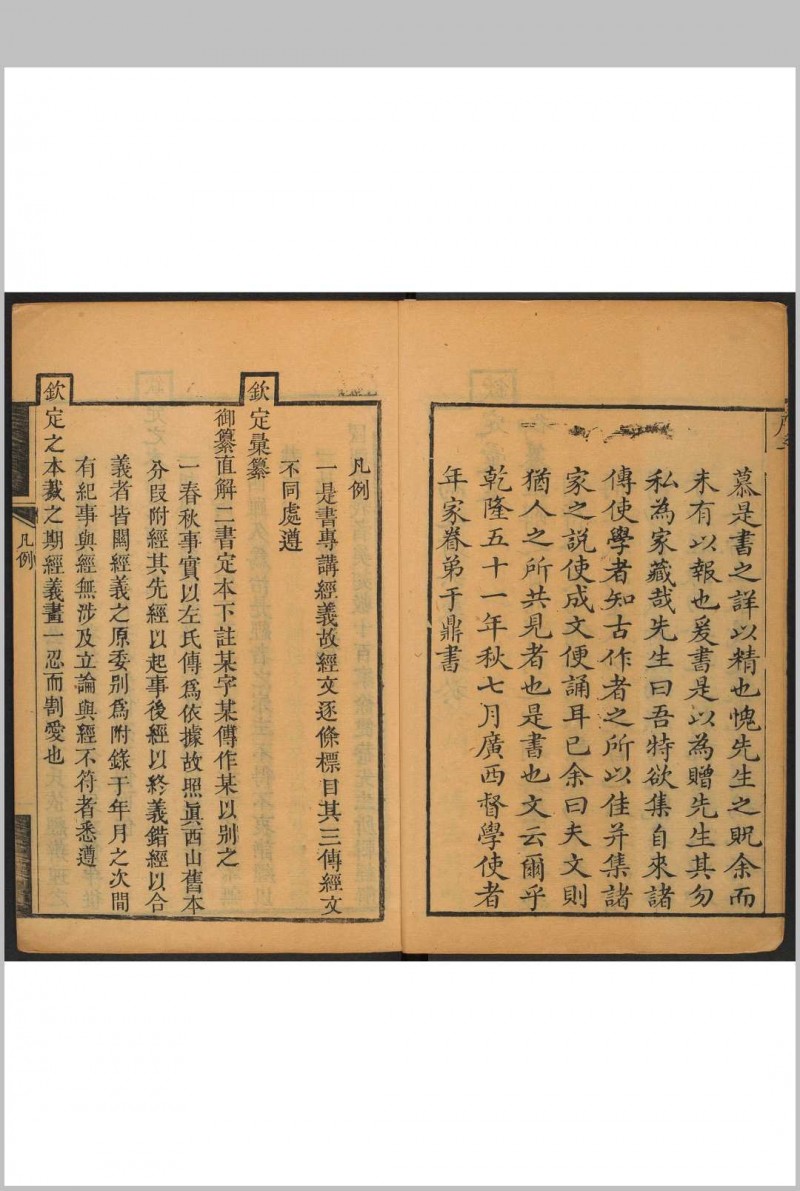 慕是書之詳以精也愧先生之貺余而
未有以報也爰書是以為贈先生其勿
私為家藏哉先生曰吾特欲集自來諸
傳使學者知古作者之所以佳并集諸
家之說使成文便誦耳已余曰夫文則
猶人之所共見者也是書也文云爾乎
乾隆五十一年秋七月廣西督學使者
年家眷弟于鼎書
凡例
一是書專講經義故經文逐條標目其三傳經文
不同處遵
欽定彙纂
御纂直解二書定本下註某字某傳作某以別之
一春秋事實以左氏傳爲依據故照眞西山舊本
分段附經其先經以起事後經以終義錯經以合
義者皆關經義之原委別爲附錄于年月之次間
有紀事與經無涉及立論與經不符者悉遵
欽定之本裁之期經義畫一忍而割愛也
凡例